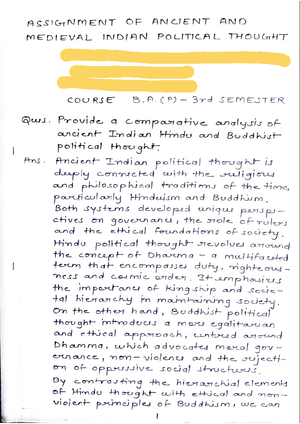 ASSIGNMENT OF ANCIENT AND
MEDIEVAL INDIAN POLITICAL THOUGHT
COURSE B.A.(P) - 3rd SEMESTER
Ques. Provide a comparative analysis of
ancient Indian Hindu and Buddhist
political thought.
Ans. Ancient Indian political thought is
deeply connected with the religious
and philosophical traditions of the time,
particularly Hinduism and Buddhism.
Both systems developed unique perspe-
ctives on governance, the role of rulers
and the ethical foundations of society.
Hindu political thought revolves around
the concept of Dharma - a multifaceted
term that encompasses duty, righteous-
ness and cosmic order. It emphasizes
the importance of kingship and socie-
tal hierarchy in maintaining society.
On the other hand, Buddhist political
thought introduces a more egalitarian
and ethical approach, centred around
Dhamma, which advocates moral gov-
ernance, non-violence and the rejecti-
on of oppressive social structures.
By contrasting the hierarchial elements
of Hindu thought with ethical and non-
violent principles of Buddhism, we can
1